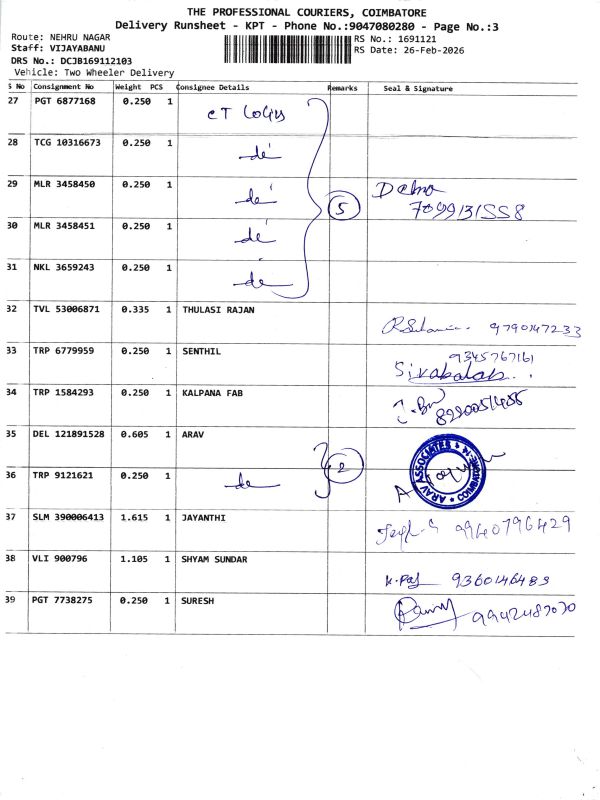 THE PROFESSIONAL COURIERS, COIMBATORE
Delivery Runsheet - KPT - Phone No.:9047080280 - Page No.:3
Route: NEHRU NAGAR
RS No.: 1691121
Staff: VIJAYABANU
RS Date: 26-Feb-2026
DRS No.: DCJB169112103
Vehicle: Two Wheeler Delivery
S No Consignment No Weight PCS Consignee Details Remarks Seal & Signature
27 PGT 6877168 0.250 1 CT
28 TCG 10316673 0.250 1 de
29 MLR 3458450 0.250 1 de 5
7099131558
30 MLR 3458451 0.250 1 de
31 NKL 3659243 0.250 1 de
32 TVL 53006871 0.335 1 THULASI RAJAN
9790147233
33 TRP 6779959 0.250 1 SENTHIL 9345767161
Sivabalan
34 TRP 1584293 0.250 1 KALPANA FAB
35 DEL 121891528 0.605 1 ARAV
ARAV ASSOCIATES COIMBATORE-14
36 TRP 9121621 0.250 1 de 2
37 SLM 390006413 1.615 1 JAYANTHI
9940796429
38 VLI 900796 1.105 1 SHYAM SUNDAR
9360146483
39 PGT 7738275 0.250 1 SURESH
9942487070